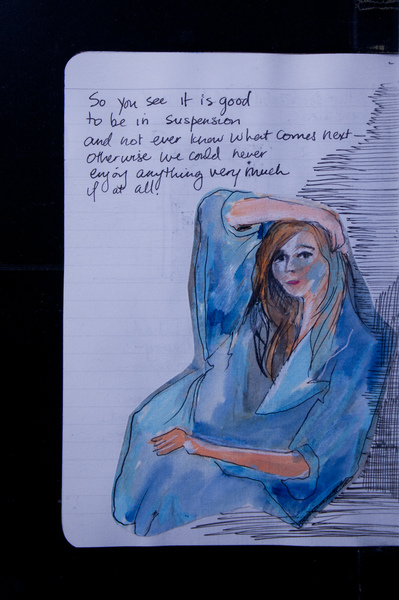 So you see it is good
to be in suspension
and not ever know what comes next—
otherwise we could never
enjoy anything very much
if at all.